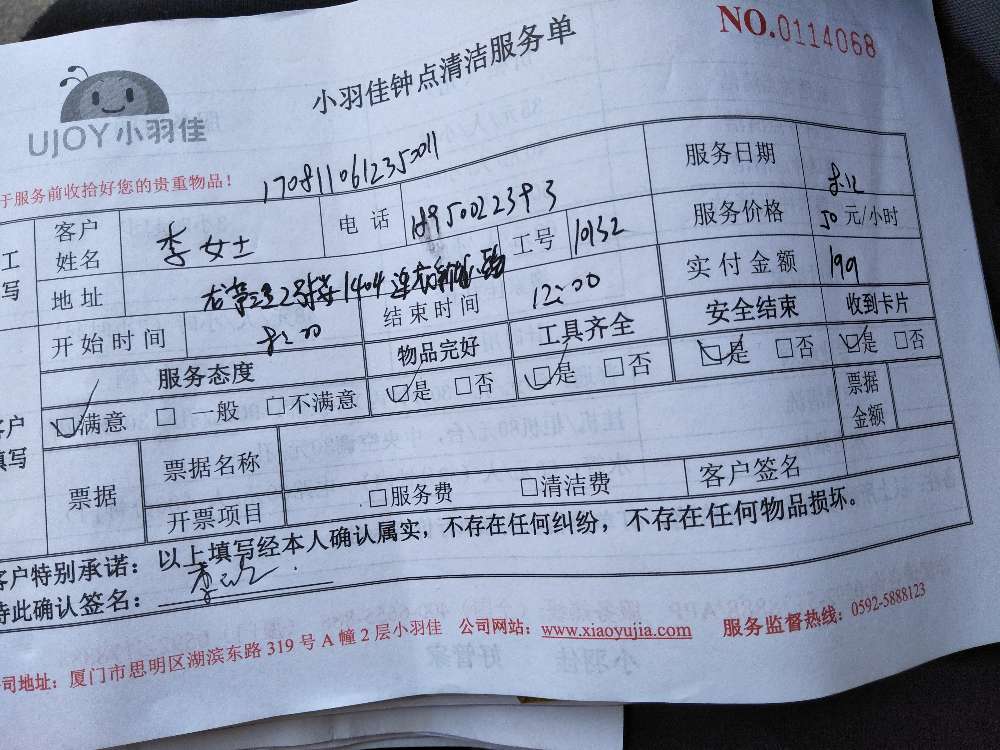 NO.0114068
小羽佳钟点清洁服务单
UJOY小羽佳
于服务前收拾好您的贵重物品！
1708110612350011
客户姓名 李女士 电话 18950022393 服务日期 8.12
工号 10132 服务价格 50元/小时
地址 1404
实付金额 199
开始时间 8:00 结束时间 12:00
服务态度 物品完好 工具齐全 安全结束 收到卡片
□满意 □一般 □不满意 □是 □否 □是 □否 □是 □否 □是 □否
客户填写
票据 票据名称 票据金额
开票项目 □服务费 □清洁费 客户签名
客户特别承诺：以上填写经本人确认属实，不存在任何纠纷，不存在任何物品损坏。
特此确认签名：
公司地址：厦门市思明区湖滨东路319号A幢2层小羽佳 公司网站：www.xiaoyujia.com 服务监督热线：0592-5888123